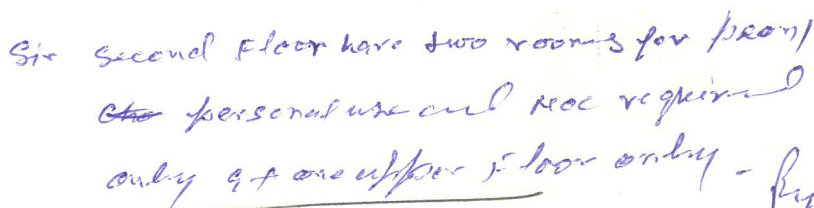 Sir Second Floor have two rooms for
personal use and NOC required
only of one upper Floor only -